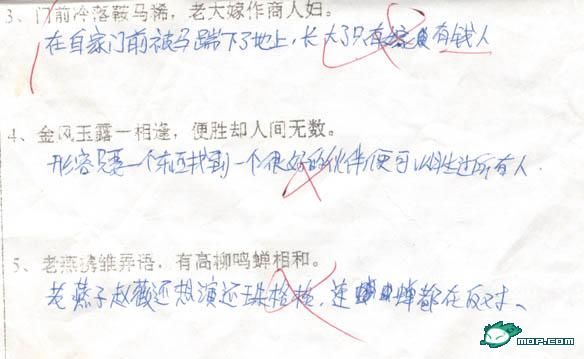 3、门前冷落鞍马稀，老大嫁作商人妇。
在自家门前被马踹下了地上，长大了只有嫁有钱人
4、金风玉露一相逢，便胜却人间无数。
形容只要一个东西找到一个很好的伙伴便可以胜过所有人.
5、老燕携雏弄语，有高柳鸣蝉相和。
老燕子赵薇还想演还珠格格，连蝉都在反对、
MOP.COM